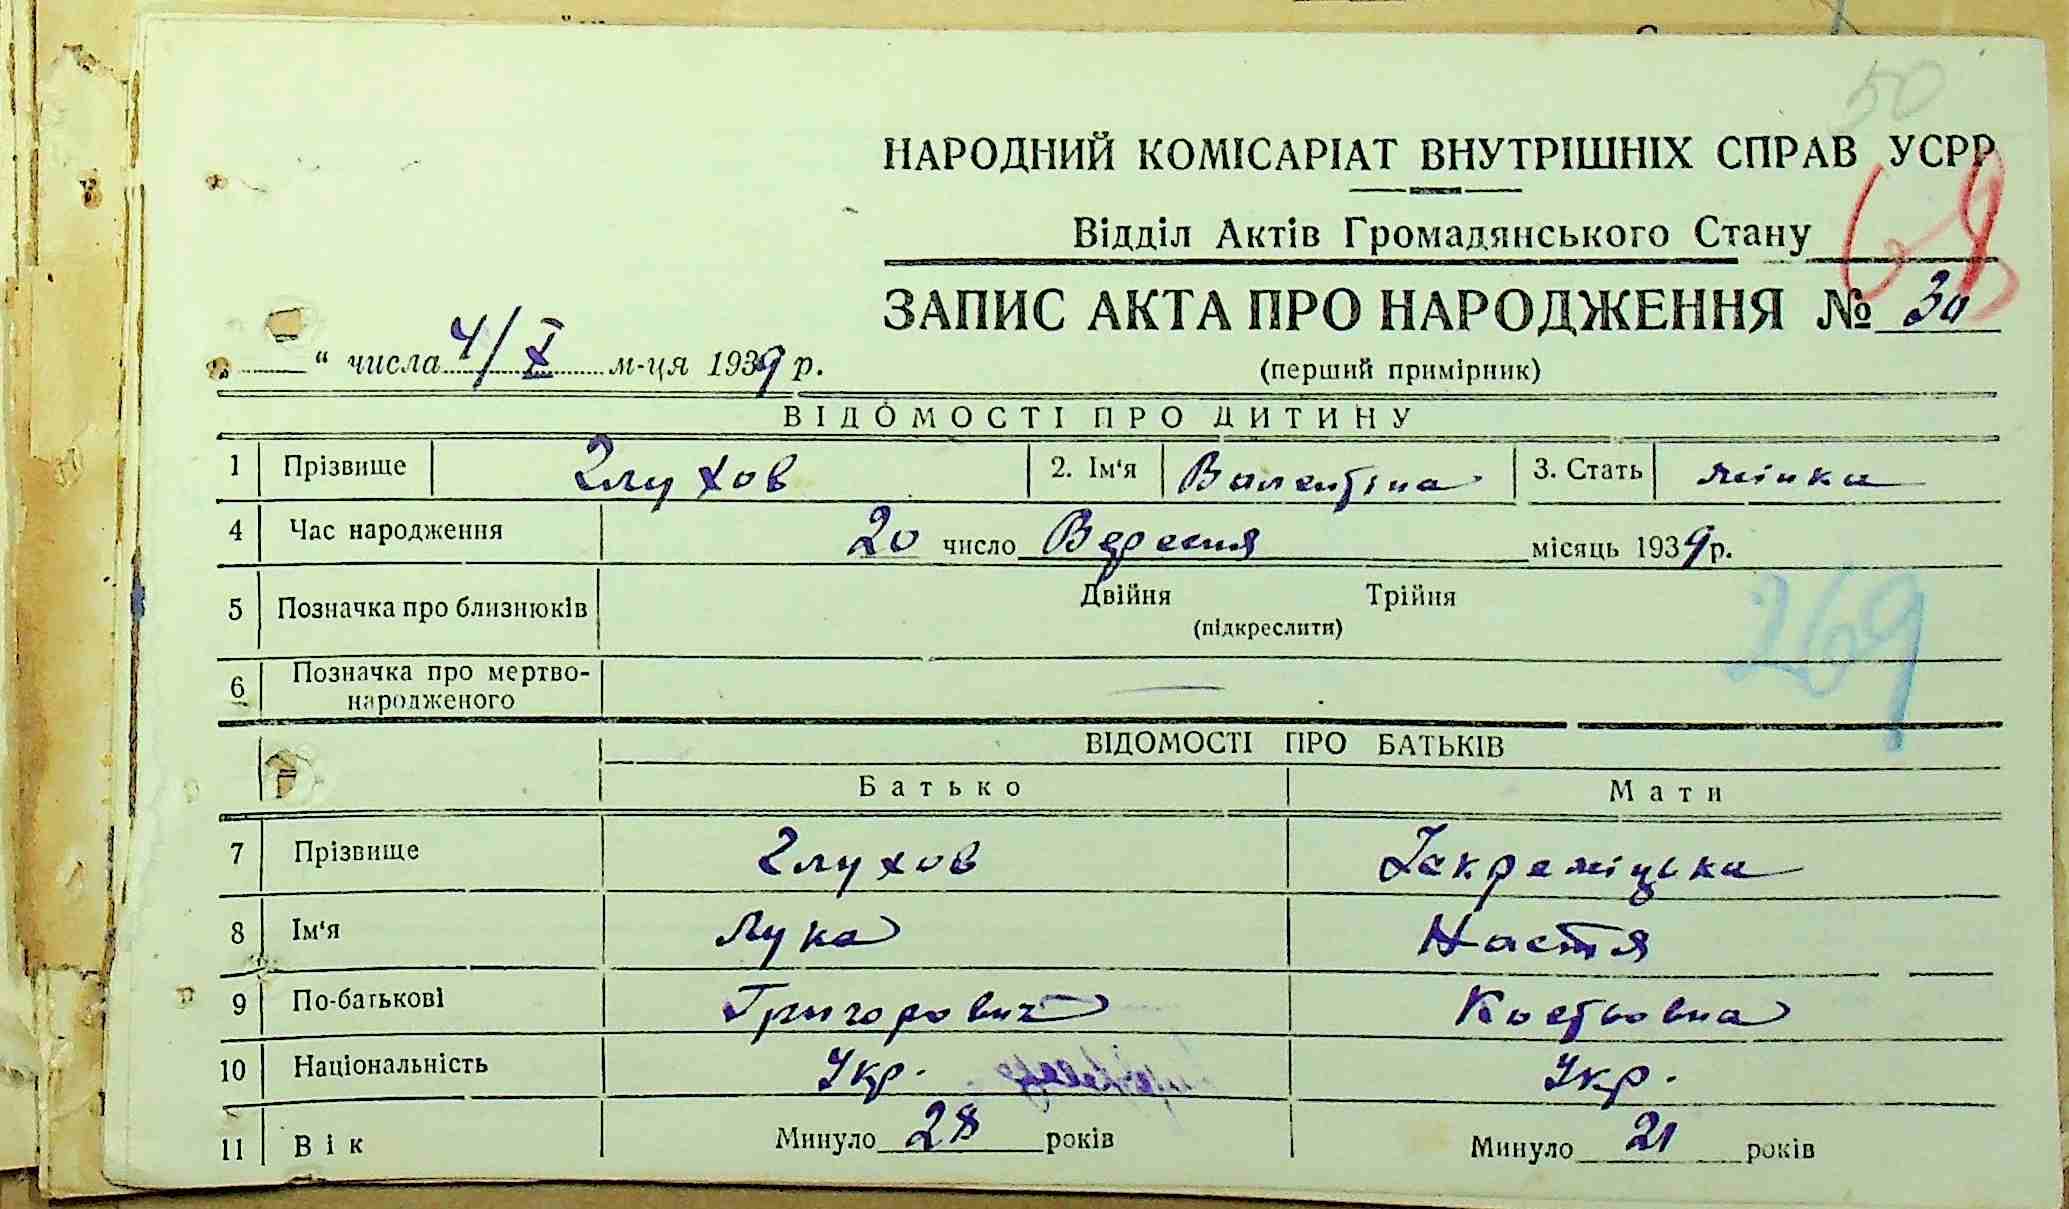 50
НАРОДНИЙ КОМІСАРІАТ ВНУТРІШНІХ СПРАВ УСРР
Відділ Актів Громадянського Стану
69
ЗАПИС АКТА ПРО НАРОДЖЕННЯ № 30
„ “ числа 4/X м-ця 1939 р.
(перший примірник)
ВІДОМОСТІ ПРО ДИТИНУ
1 Прізвище Глухов 2. Ім'я Валентіна 3. Стать жінка
4 Час народження 20 число Вересня місяць 1939 р.
5 Позначка про близнюків Двійня Трійня
(підкреслити)
269
6 Позначка про мертво-
народженого —
ВІДОМОСТІ ПРО БАТЬКІВ
Батько Мати
7 Прізвище Глухов
8 Ім'я Лука Настя
9 По-батькові Григорович Костьовна
10 Національність Укр. Укр.
11 Вік Минуло 28 років Минуло 21 років